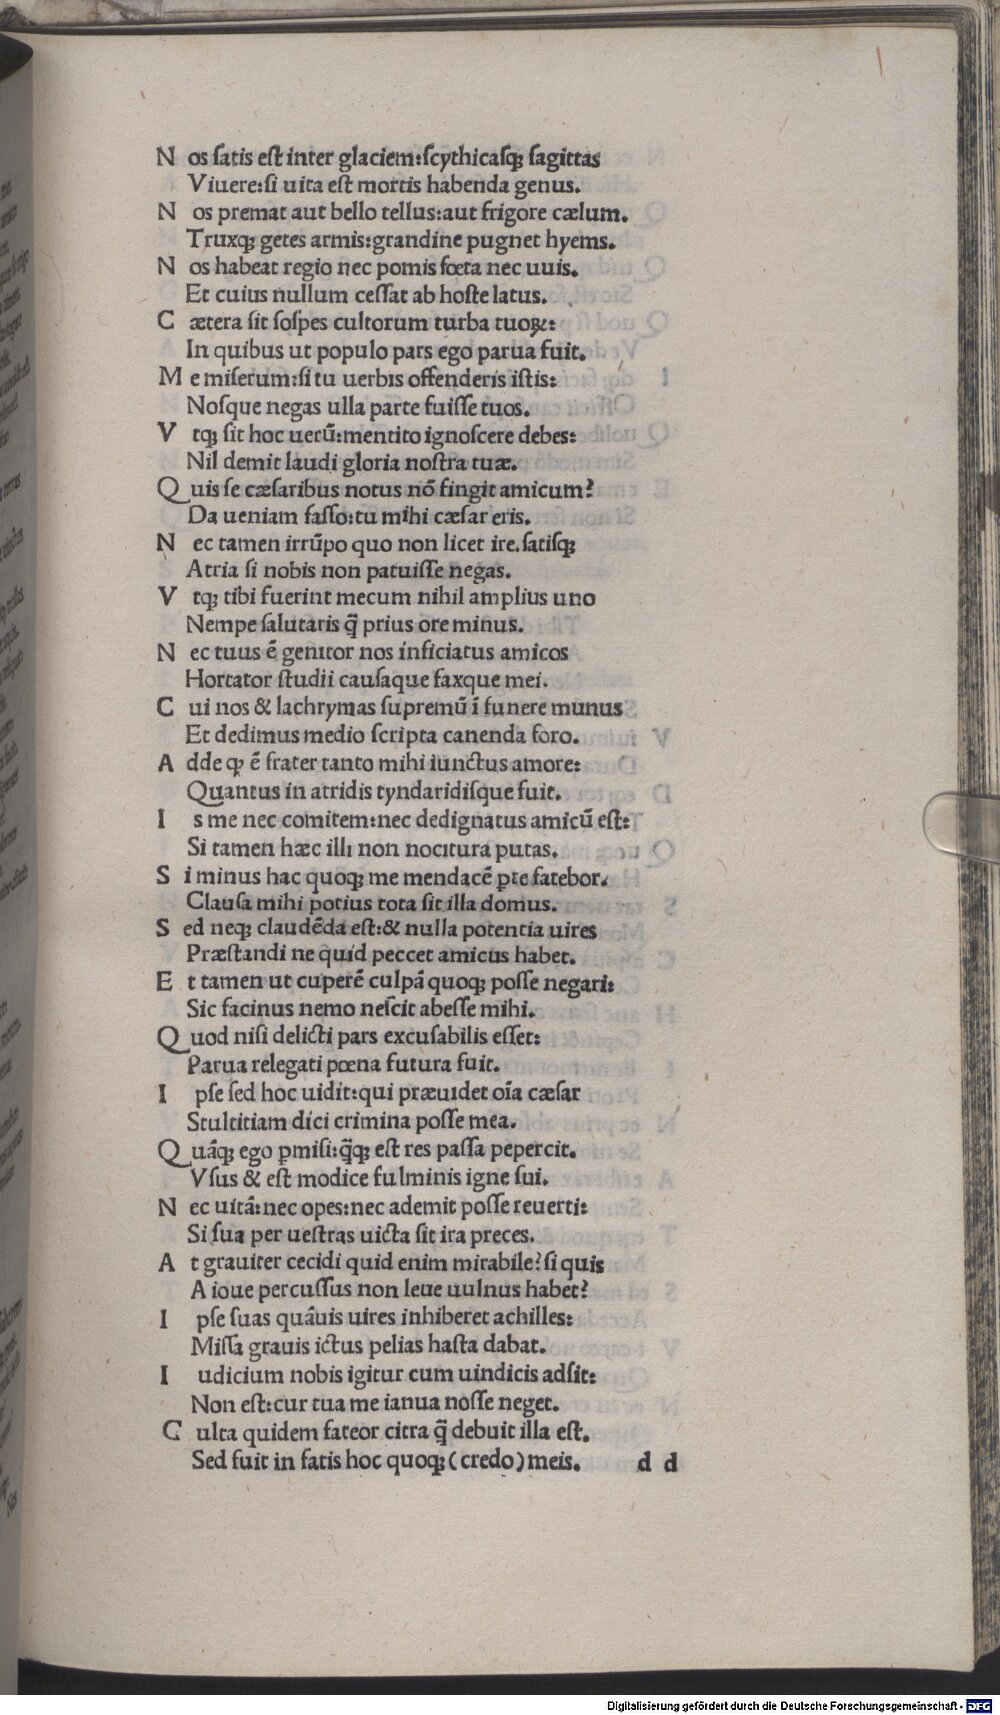 N os ſatis eſt inter glaciem:ſcythicaſqꝫ ſagittas
Viuere:ſi uita eſt mortis habenda genus.
N os premat aut bello tellus:aut frigore cælum.
Truxqꝫ getes armis:grandine pugnet hyems.
N os habeat regio nec pomis fœta nec uuis.
Et cuius nullum ceſſat ab hoſte latus.
C ætera ſit ſoſpes cultorum turba tuoꝝ:
In quibus ut populo pars ego parua fuit.
M e miſerum:ſi tu uerbis offenderis iſtis:
Noſque negas ulla parte fuiſſe tuos.
V tqꝫ ſit hoc uerū:mentito ignoſcere debes:
Nil demit laudi gloria noſtra tuæ.
Q uis ſe cæſaribus notus nō fingit amicum?
Da ueniam faſſo:tu mihi cæſar eris.
N ec tamen irrūpo quo non licet ire.ſatiſqꝫ
Atria ſi nobis non patuiſſe negas.
V tqꝫ tibi fuerint mecum nihil amplius uno
Nempe ſalutaris q̄ prius ore minus.
N ec tuus ē genitor nos inficiatus amicos
Hortator ſtudii cauſaque faxque mei.
C ui nos & lachrymas ſupremū ī funere munus
Et dedimus medio ſcripta canenda foro.
A dde qꝫ ē frater tanto mihi iunctus amore:
Quantus in atridis tyndaridiſque fuit.
I s me nec comitem:nec dedignatus amicū eſt:
Si tamen hæc illi non nocitura putas.
S i minus hac quoqꝫ me mendacē ꝑte fatebor.
Clauſa mihi potius tota ſit illa domus.
S ed neqꝫ claudēda eſt:& nulla potentia uires
Præſtandi ne quid peccet amicus habet.
E t tamen ut cuperē culpā quoqꝫ poſſe negari:
Sic facinus nemo neſcit abeſſe mihi.
Q uod niſi delicti pars excuſabilis eſſet:
Parua relegati pœna futura fuit.
I pſe ſed hoc uidit:qui præuidet oīa cæſar
Stultitiam dici crimina poſſe mea.
Q uāqꝫ ego ꝑmiſi:q̄qꝫ eſt res paſſa pepercit.
Vſus & eſt modice fulminis igne ſui.
N ec uitā:nec opes:nec ademit poſſe reuerti:
Si ſua per ueſtras uicta ſit ira preces.
A t grauiter cecidi quid enim mirabile?ſi quis
A ioue percuſſus non leue uulnus habet?
I pſe ſuas quāuis uires inhiberet achilles:
Miſſa grauis ictus pelias haſta dabat.
I udicium nobis igitur cum uindicis adſit:
Non eſt:cur tua me ianua noſſe neget.
C ulta quidem fateor citra q̄ debuit illa eſt.
Sed fuit in fatis hoc quoqꝫ(credo)meis. d d
Digitalisierung gefördert durch die Deutsche Forschungsgemeinschaft - DFG